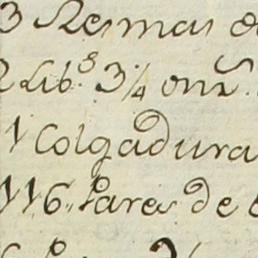 3 Resmas de
2 Lib.s 3¼ onz.
1 Colgadura
116 Pares de